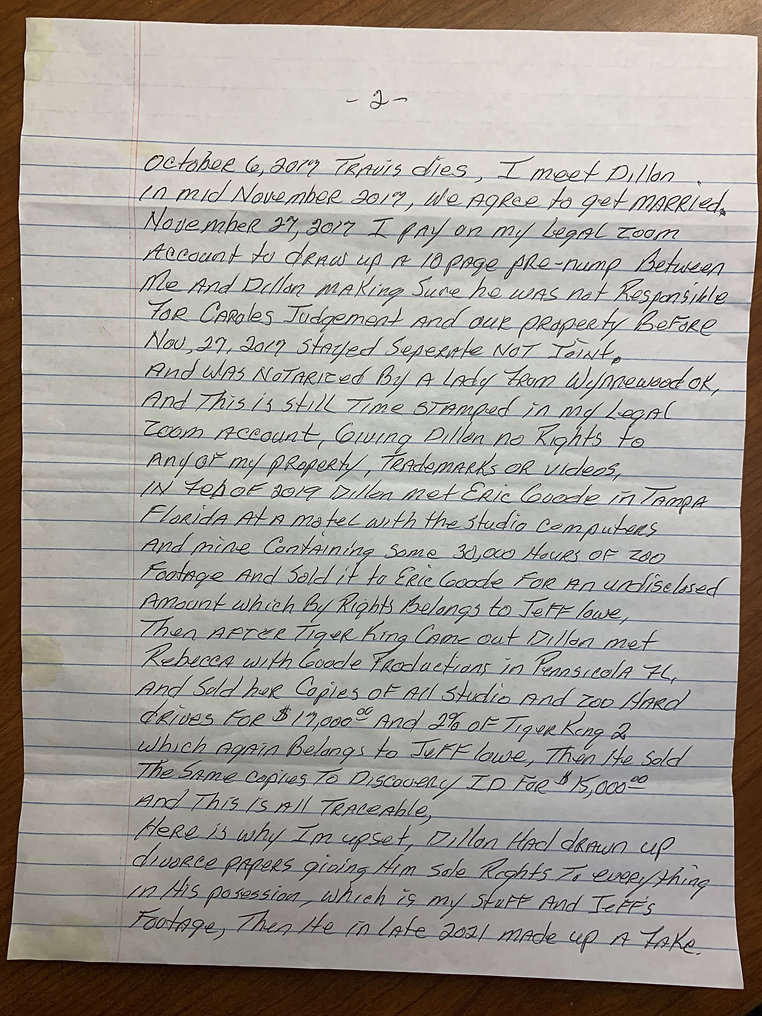 - 2 -
October 6, 2017 Travis dies, I meet Dillon
in mid November 2017, we agree to get married.
November 27, 2017 I pay on my Legal Zoom
Account to draw up a 10 page pre-nump Between
Me And Dillon making Sure he was not Responsible
For Caroles Judgement And our property Before
Nov, 27, 2017 stayed Seperate NOT Joint.
And was Notarized By A Lady From Wynnewood OK,
And This is still Time stamped in my Legal
Zoom Account, Giving Dillon no Rights to
Any of my property, Trademarks or videos,
IN Feb OF 2019 Dillon met Eric Goode in Tampa
Florida At A motel with the studio computers
And mine Containing some 30,000 Hours of zoo
Footage And Sold it to Eric Goode For An undisclosed
Amount which By Rights Belongs to Jeff lowe,
Then AFTER Tiger King Came out Dillon met
Rebecca with Goode Productions in Pennsicola FL,
And Sold her Copies of All Studio And zoo Hard
drives For $17,000.00 And 2% of Tiger King 2
which Again Belongs to Jeff lowe, Then He Sold
The Same copies To Discovery ID For $15,000.00
And This Is All Traceable,
Here is why Im upset, Dillon Had drawn up
divorce papers giving Him Sole Rights To everything
in His posession, which is my stuff And Jeff's
Footage, Then He in Late 2021 made up A Fake.